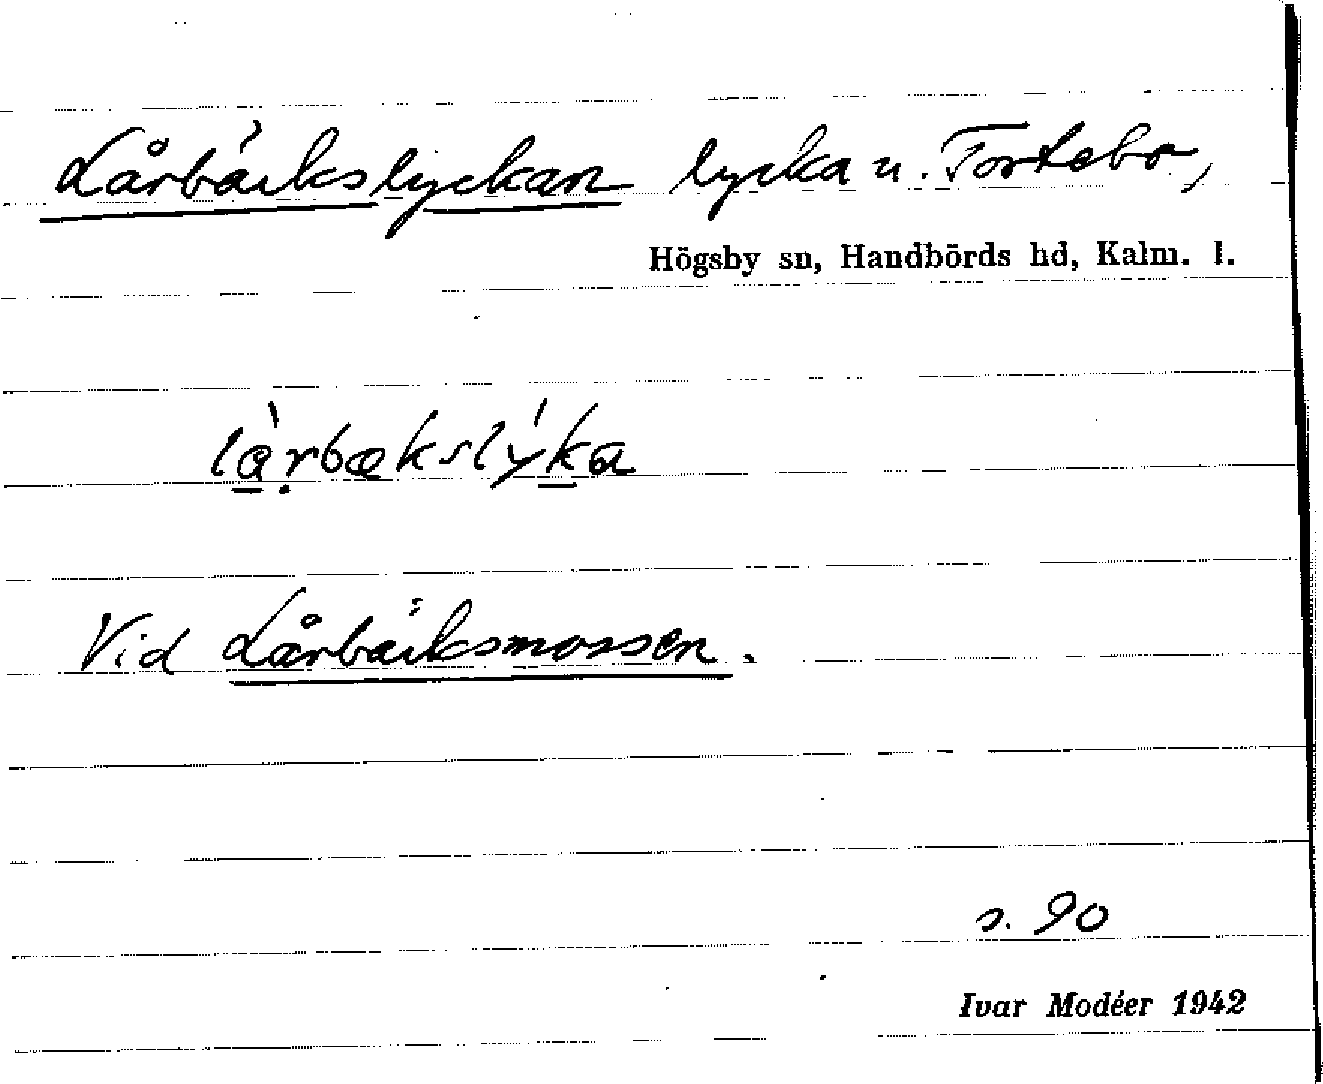 Lårbäckslyckan lycka u. Fortebo,
Högsby sn, Handbörds hd, Kalm. l.
là̱ṛbækslýḵa
Vid Lårbäcksmossen.
s. 90
Ivar Modéer 1942